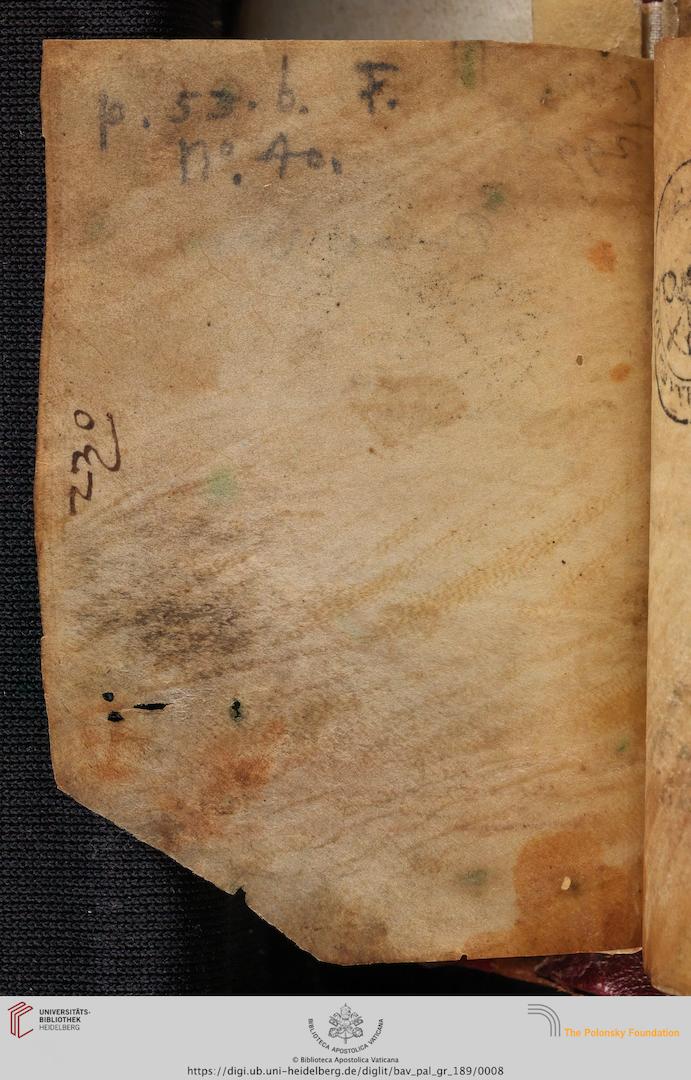 p. 53. b. F.
nº. 40.
230
UNIVERSITÄTS-
BIBLIOTHEK
HEIDELBERG
BIBLIOTECA APOSTOLICA VATICANA
© Biblioteca Apostolica Vaticana
The Polonsky Foundation
https://digi.ub.uni-heidelberg.de/diglit/bav_pal_gr_189/0008